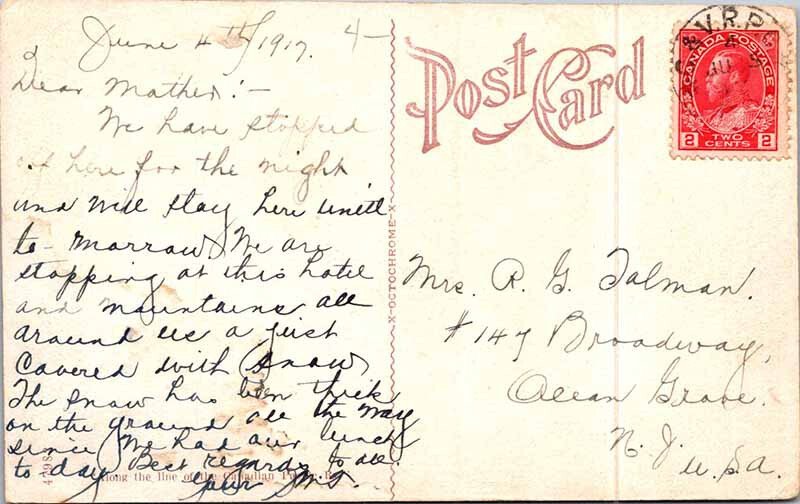 June 4th/1917.
4-
Dear Mother:-
We have stopped
at here for the night
and will stay here untill
to-morrow. We are
stopping at this hotel
and mountains all
around us a just
covered with snow
The snow has been thick
on the ground all the way
since we had our lunch
to day Best regards to all.
Your
Along the line of the Canadian
Post Card
X-OCTOCHROME-X
V.R.P.
4
JU
CANADA POSTAGE
2 TWO CENTS 2
Mrs. R. G. Talman.
#147 Broadway,
Ocean Grove.
N.J.
U.S.A.